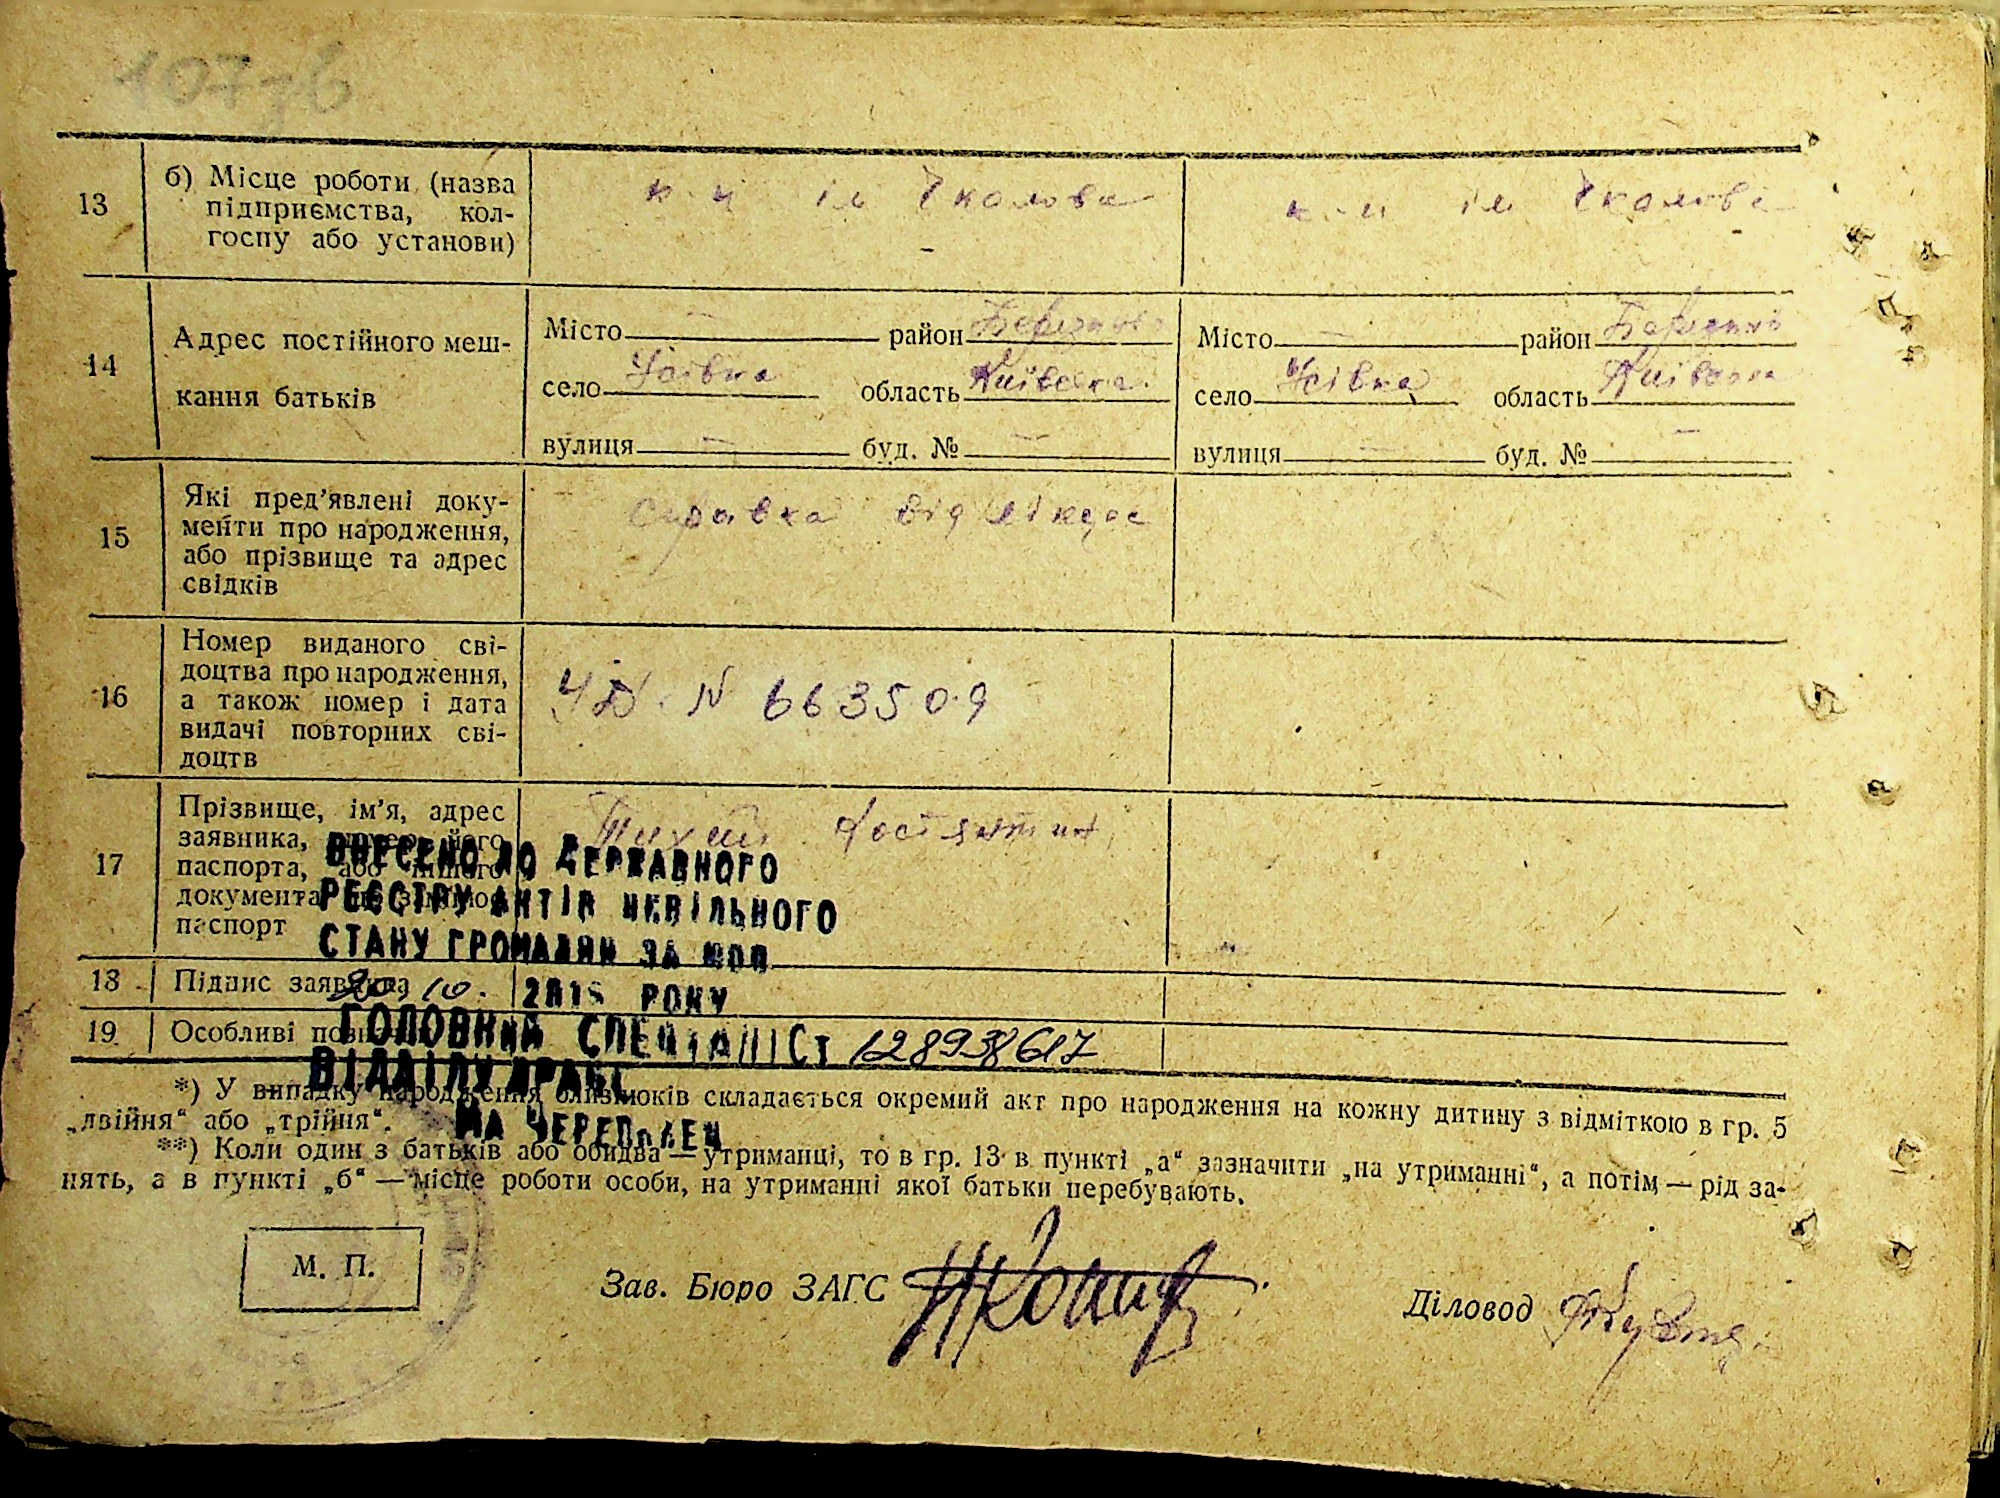 107-б
13
б) Місце роботи (назва
підприємства, кол-
госпу або установи)
к-п ім Чкалова
к-п ім Чкалова
14
Адрес постійного меш-
кання батьків
Місто — район
село Усівка область Київська
вулиця — буд. № —
Місто — район
село Усівка область Київська
вулиця — буд. № —
15
Які пред'явлені доку-
менти про народження,
або прізвище та адрес
свідків
справка від
16
Номер виданого сві-
доцтва про народження,
а також номер і дата
видачі повторних сві-
доцтв
N 663509
17
Прізвище, ім'я, адрес
заявника, номер його
паспорта, або іншого
документа, що заміняє
паспорт
Тихий Костянтин
ВНЕСЕНО ДО ДЕРЖАВНОГО
РЕЄСТРУ АКТІВ ЦИВІЛЬНОГО
СТАНУ ГРОМАДЯН ЗА
18
Підпис заявника
20.10. 2015 РОКУ
19
Особливі
ГОЛОВНИЙ СПЕЦІАЛІСТ 128938617
ВІДДІЛУ ДРАЦС
*) У випадку народження близнюків складається окремий акт про народження на кожну дитину з відміткою в гр. 5
„двійня“ або „трійня“.
МА ЧЕРЕПОЛЕЦ
**) Коли один з батьків або обидва — утриманці, то в гр. 13 в пункті „а“ зазначити „на утриманні“, а потім — рід за-
нять, а в пункті „б“ — місце роботи особи, на утриманні якої батьки перебувають.
М. П.
Зав. Бюро ЗАГС
Діловод